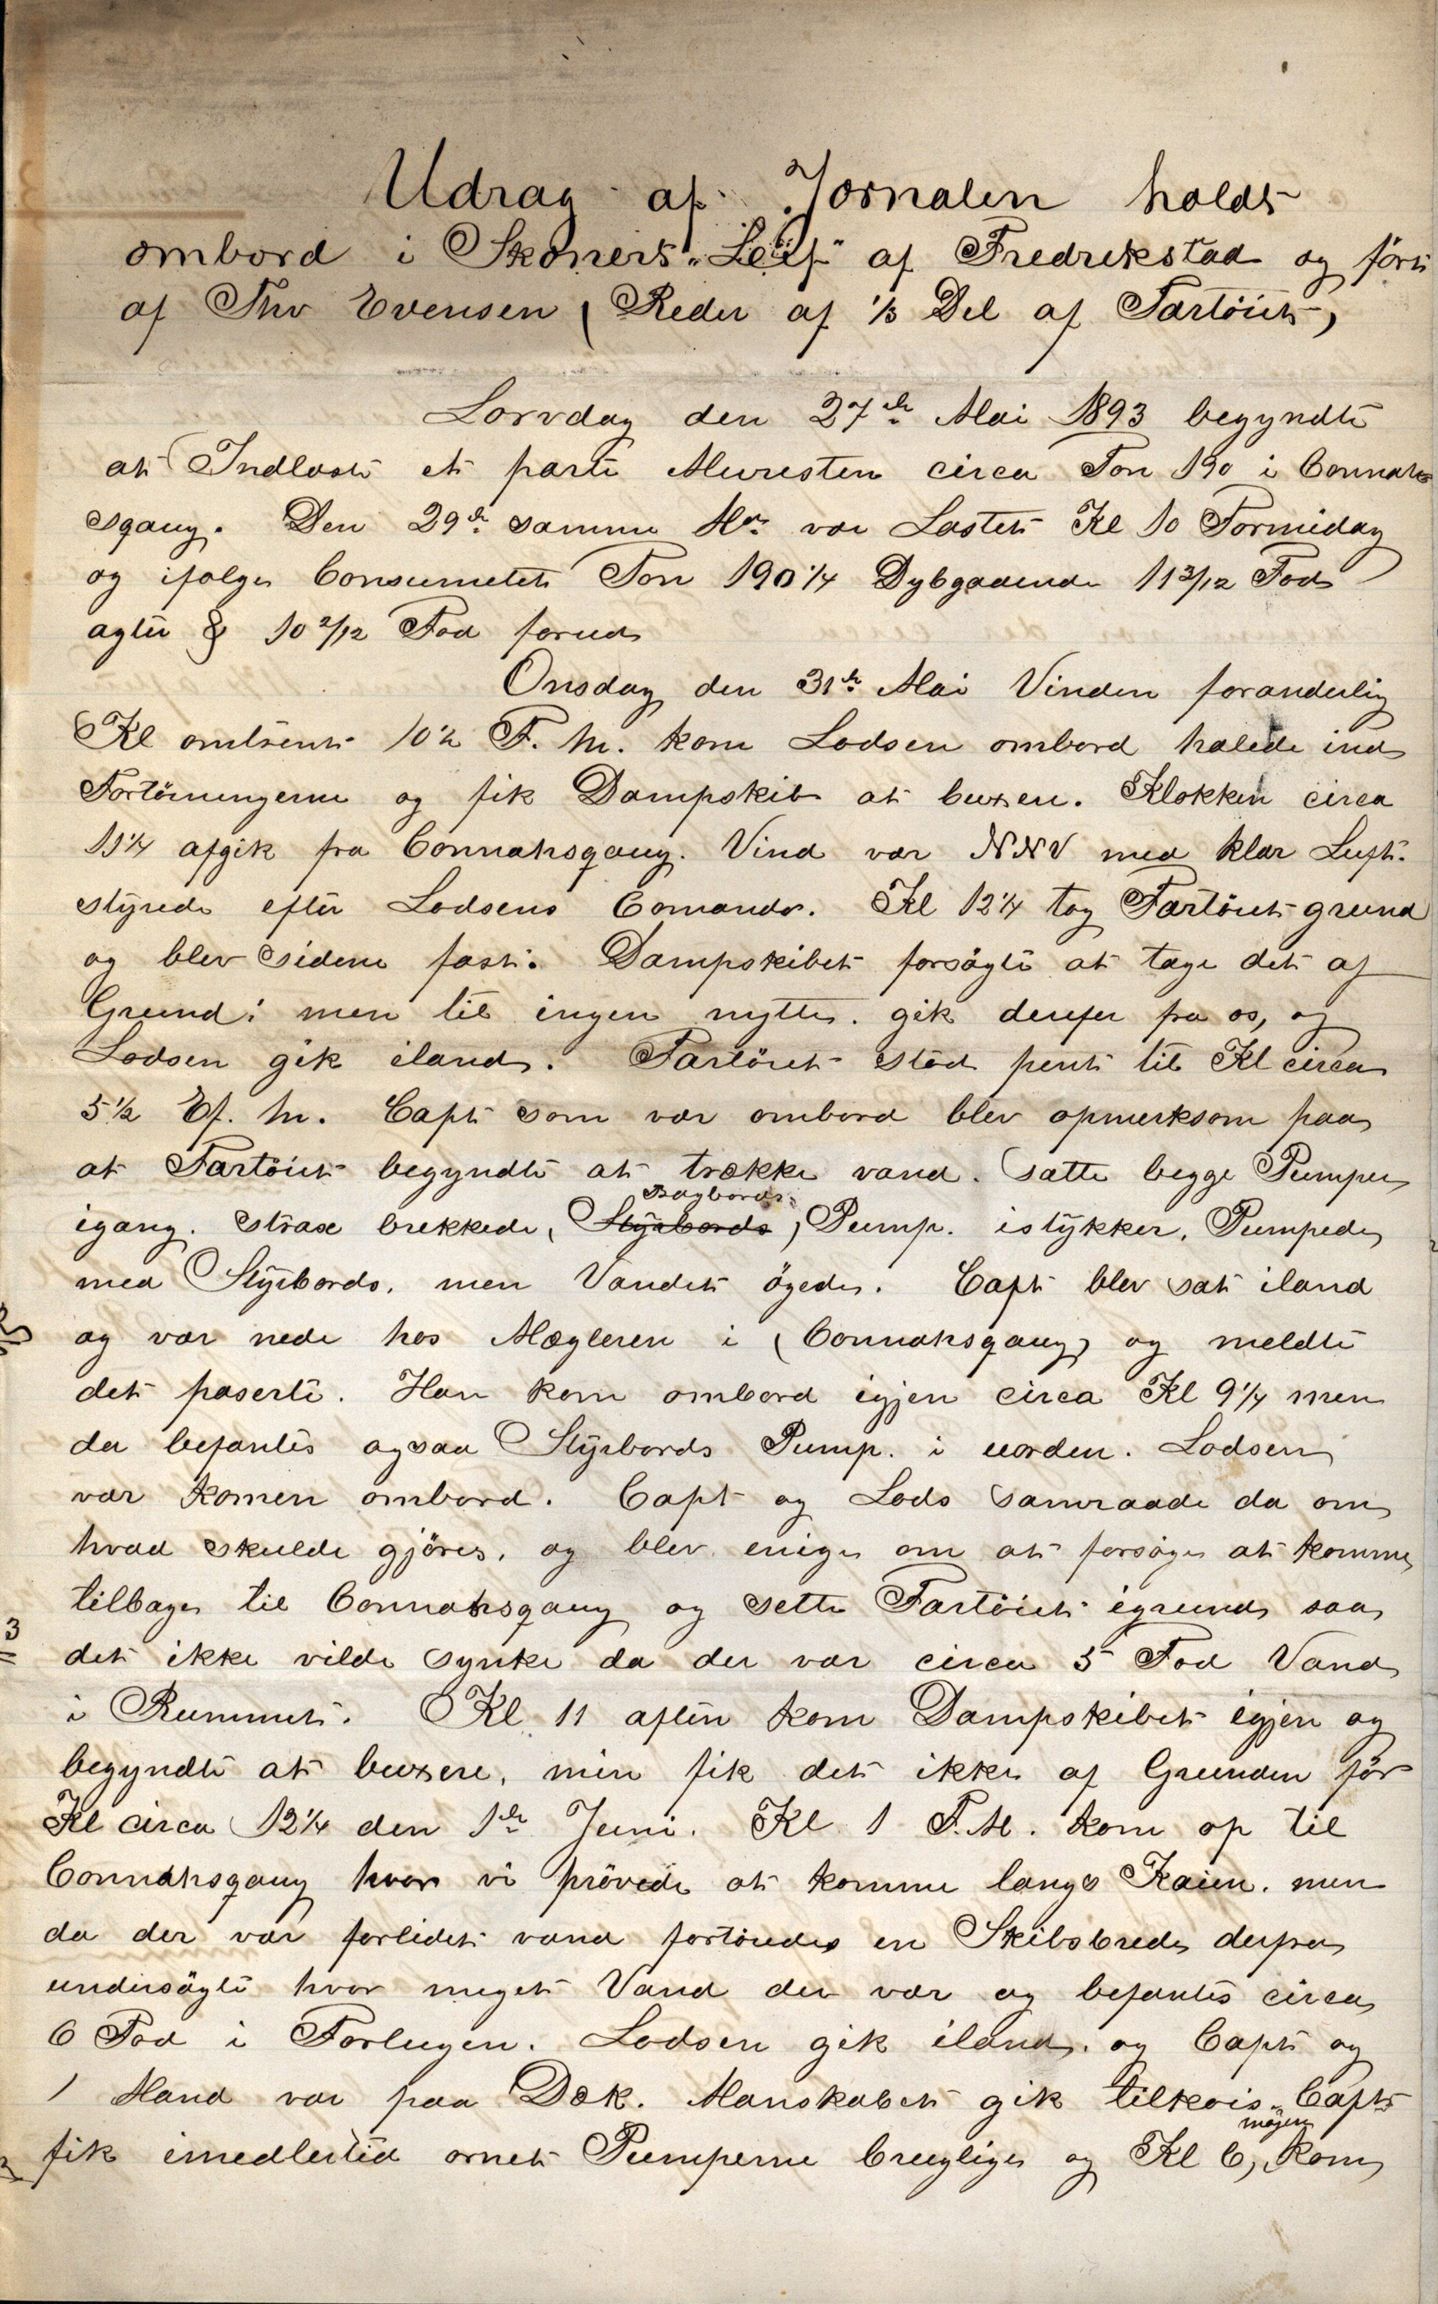 Udrag af Jornalen holdt
ombord i Skonert „Leif" af Fredrekstad og ført
af Thv Evensen (Reder af 1/3 Del af Fartöiet)
Lørvdag den 27de Mai 1893 begyndte
at Indlaste et parti Mursten circa Ton 190 i Connahs
qauy. Den 29de samme Mn var Lastet Kl 10 Formidag
og ifølge Consumetet Ton 190 1/4 Dybgaaende 11 3/12 Fod
agter & 10 2/12 Fod forud
Onsdag den 31de Mai Vinden foranderlig
Kl omtrent 10 1/2 F. M. kom Lodsen ombord halede ind
Fortöiningerne og fik Dampskib at buxere. Klokken circa
11 1/4 afgik fra Connahsqauy. Vind var NNV med klar Luft.
styrede efter Lodsens Comando. Kl 12 1/4 tog Fartöiet grund
og blev sidene fast. Dampskibet forsögte at tage det af
Grund; men til ingen nytte. gik derefer fra os, og
Lodsen gik iland. Fartöiet stod pent til Kl circa
5 1/2 Ef. M. Capt som var ombord blev opmerksom paa
at Fartöiet begyndte at trække vand. satte begge Pumper
igang. strax brekkede, Bagbords ~~Styrbords~~, Pump. istykker, Pumpede
med Styrbords, men Vandet ögede. Capt blev sat iland
og var nede hos Mægleren i (Connahsqauy) og meldte
det paserte. Han kom ombord igjen circa Kl 9 1/4 men
da befantes ogsaa Styrbords Pump. i uorden. Lodsen
var komen ombord. Capt og Lods samraade da om
hvad skulde gjöres, og blev enige om at forsöge at komme
tilbage til Connahsqauy og sette Fartöiet igrund saa
det ikke vilde synke da der var circa 5 Fod Vand
i Rummet. Kl 11 aften kom Dampskibet igjen og
begyndte at buxere, men fik det ikke af Grunden för
Kl circa 12 1/4 den 1de Juni. Kl 1 F.M. kom op til
Connahsqauy hvor vi prövede at komme langs Kaien. men
da der var forlidet vand fortöiedes en Skibsbrede derpaa
undersögte hvor meget Vand der var og befantes circa
6 Fod i Forlugen. Lodsen gik iland. og Capt og
1 Mand var paa Dæk. Manskabet gik tilkois. Capt
fik imedlertid ornet Pumperne bruglige og Kl 6, mojen kom
3